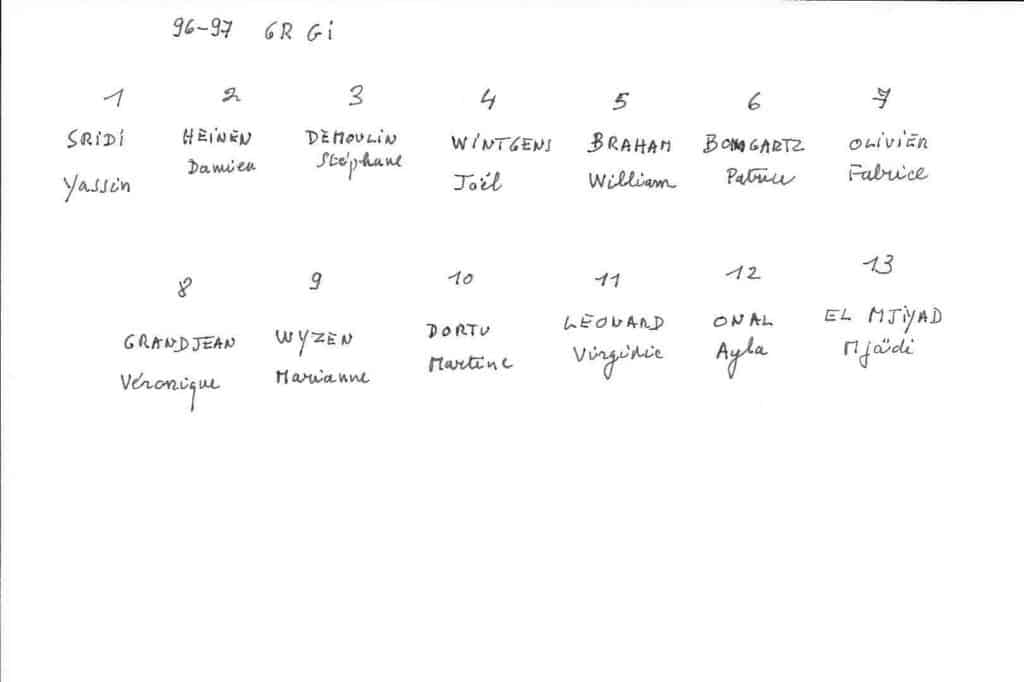 96-97 GR Gi
1 2 3 4 5 6 7
SRIDI HEINEN DEMOULIN WINTGENS BRAHAM BOMGARTZ OLIVIER
Yassin Damien Stéphane Joël William Patrice Fabrice
8 9 10 11 12 13
GRANDJEAN WYZEN DORTU LEONARD ONAL EL MJIYAD
Véronique Marianne Martine Virginie Ayla Mjaïdi